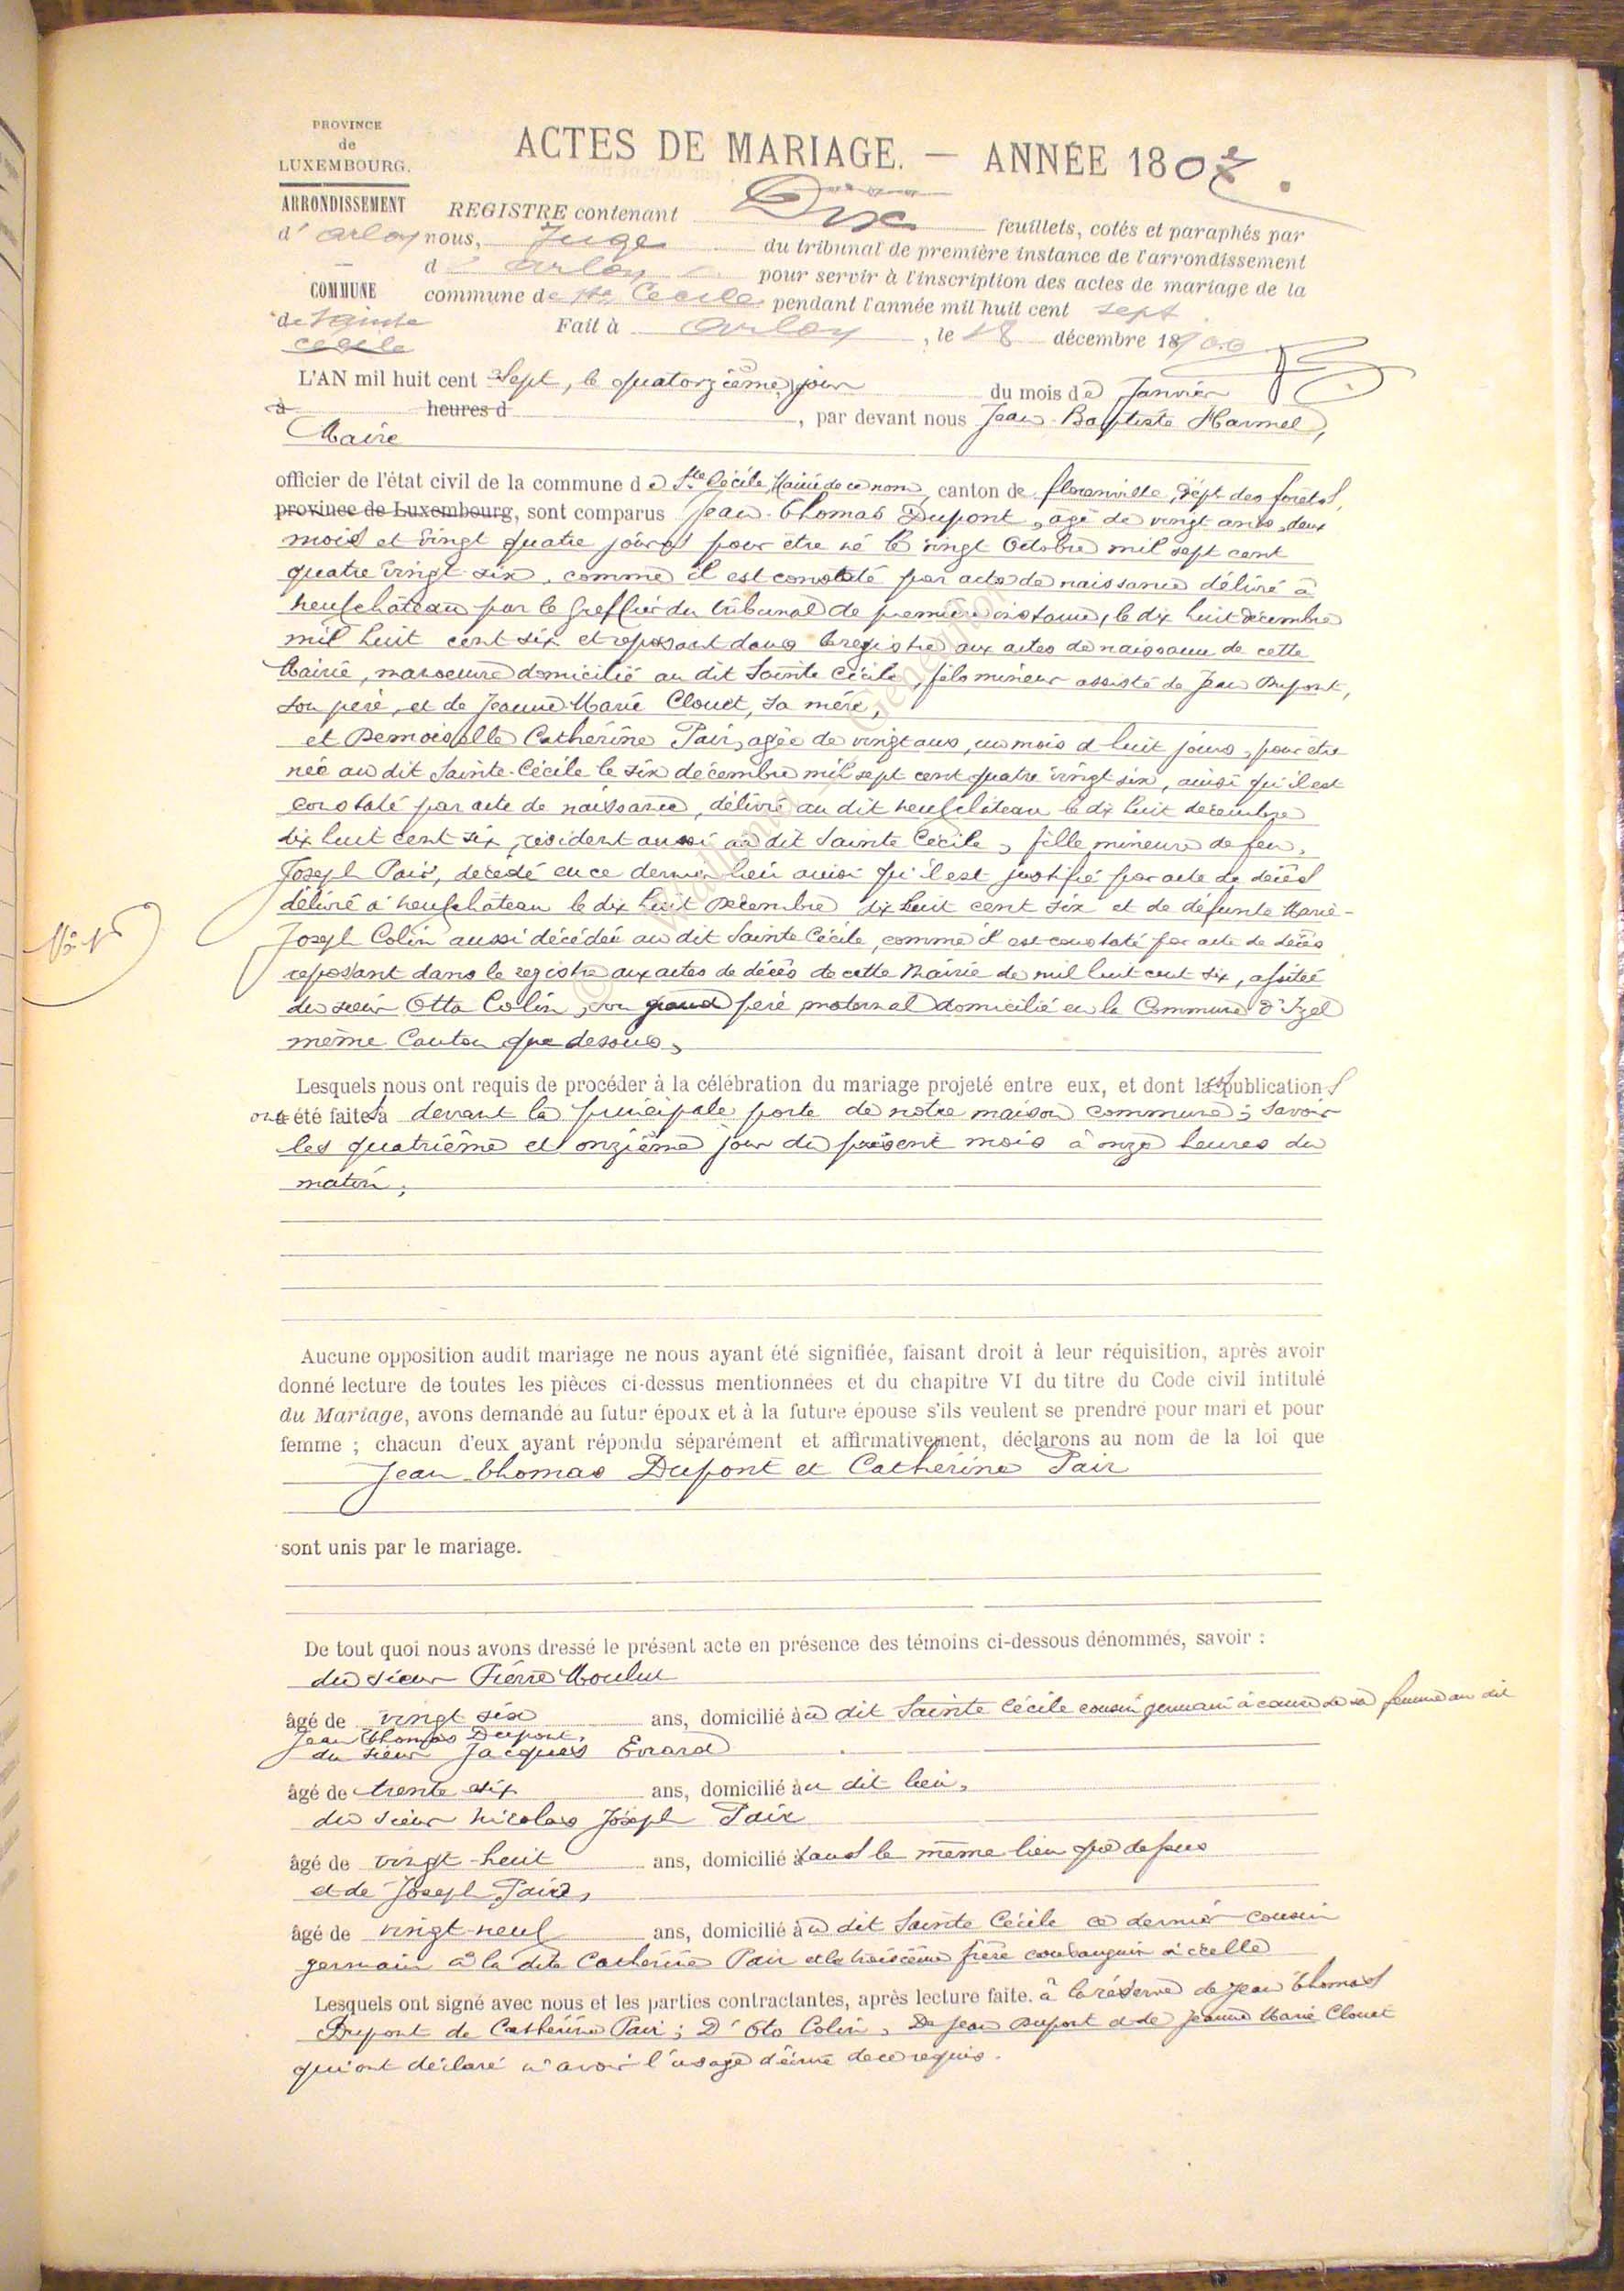 PROVINCE
de
LUXEMBOURG.
ARRONDISSEMENT
d'Arlon
COMMUNE
de Sainte
Cécile
ACTES DE MARIAGE. — ANNÉE 1807.
REGISTRE contenant Dix feuillets, cotés et paraphés par
nous, Juge du tribunal de première instance de l'arrondissement
d'Arlon pour servir à l'inscription des actes de mariage de la
commune de Ste Cécile pendant l'année mil huit cent sept
Fait à Arlon, le 18 décembre 1900
L'AN mil huit cent Sept, le quatorzième jour du mois de Janvier
à heures d , par devant nous Jean-Baptiste Harmel,
Maire
officier de l'état civil de la commune de Ste Cécile, Mairie de ce nom, canton de florenville, dépt des forêts,
province de Luxembourg, sont comparus Jean-Thomas Dupont, agé de vingt ans, deux
mois et vingt quatre jours pour être né le vingt Octobre mil sept cent
quatre vingt six, comme il est constaté par acte de naissance délivré à
neufchâteau par le Greffier du tribunal de première instance, le dix huit décembre
mil huit cent six et reposant dans le registre aux actes de naissance de cette
Mairie, manoeuvre domicilié au dit Sainte Cécile, fils mineur assisté de Jean Dupont,
son père, et de Jeanne Marie Clouet, sa mère,
et Demoiselle Catherine Pair, agée de vingt ans, un mois et huit jours, pour être
née au dit Sainte-Cécile le six décembre mil sept cent quatre vingt six, ainsi qu'il est
constaté par acte de naissance, délivré au dit neufchâteau le dix huit décembre
dix huit cent six, résident aussi au dit Sainte Cécile, fille mineure de feu,
Joseph Pair, décédé en ce dernier lieu ainsi qu'il est justifié par acte de décès
délivré à neufchâteau le dix huit Décembre dix huit cent six et de défunte Marie-
Joseph Colin aussi décédée au dit Sainte Cécile, comme il est constaté par acte de décès
reposant dans le registre aux actes de décès de cette Mairie de mil huit cent six, assistée
du sieur Otto Colin, son grand père maternel domicilié en la Commune d'Izel
même Canton que dessus,
No 1
Lesquels nous ont requis de procéder à la célébration du mariage projeté entre eux, et dont les publications
ont été faites à devant la principale porte de notre maison commune; savoir
les quatrième et onzième jour du présent mois à onze heures du
matin;
Aucune opposition audit mariage ne nous ayant été signifiée, faisant droit à leur réquisition, après avoir
donné lecture de toutes les pièces ci-dessus mentionnées et du chapitre VI du titre du Code civil intitulé
du Mariage, avons demandé au futur époux et à la future épouse s'ils veulent se prendre pour mari et pour
femme ; chacun d'eux ayant répondu séparément et affirmativement, déclarons au nom de la loi que
Jean Thomas Dupont et Catherine Pair
sont unis par le mariage.
De tout quoi nous avons dressé le présent acte en présence des témoins ci-dessous dénommés, savoir :
du sieur Pierre Moulu
âgé de vingt six ans, domicilié à au dit Sainte Cécile cousin germain à cause de sa femme au dit
Jean Thomas Dupont,
du sieur Jacques Evrard
âgé de trente six ans, domicilié au dit lieu,
du sieur Nicolas Joseph Pair
âgé de vingt-huit ans, domicilié dans le même lieu que dessus
et de Joseph Pair,
âgé de vingt-neuf ans, domicilié au dit Sainte Cécile ce dernier cousin
germain à la dite Catherine Pair et le troisième frère consanguin à icelle
Lesquels ont signé avec nous et les parties contractantes, après lecture faite. à la réserve de Jean Thomas
Dupont de Catherine Pair; D'Oto Colin, De Jean Dupont et de Jeanne Marie Clouet
qui ont déclaré n'avoir l'usage d'écrire de ce requis.